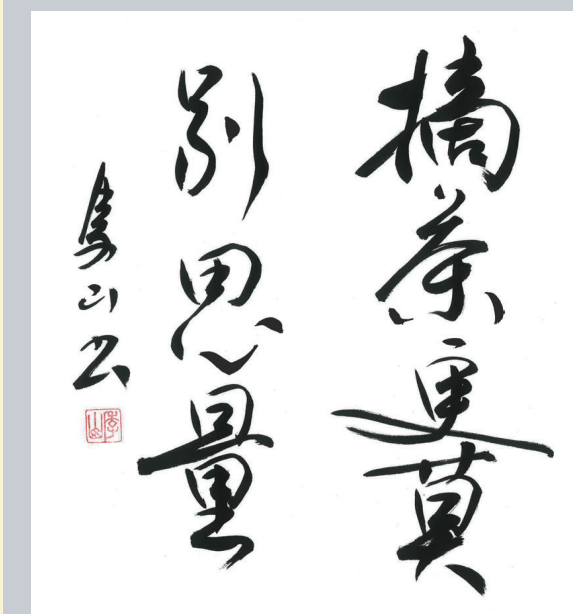 摘茶更莫
別思量
山书